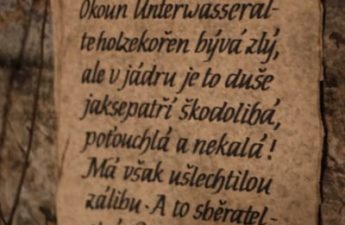 Okoun Unterwasseral-
teholzekořen bývá zlý,
ale v jádru je to duše
jaksepatří škodolibá,
poťouchlá a nekalá!
Má však ušlechtilou
zálibu. A to sběratel-